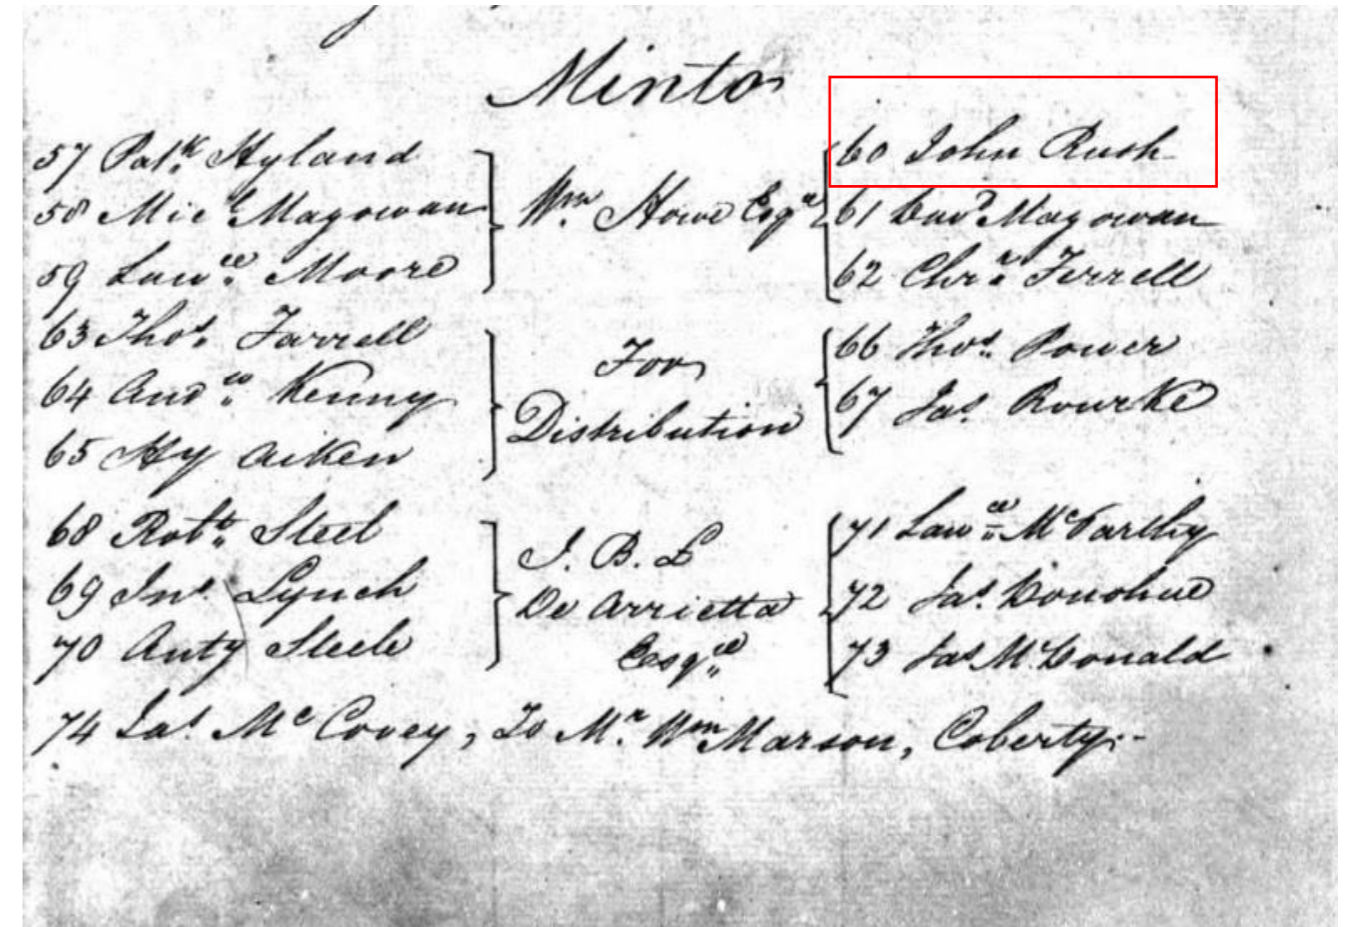 Minto
57 Patk. Hyland
58 Micl. Magowan
59 Lawce. Moore
Wm. Howe Esqr.
60 John Rush
61 Edwd. Magowan
62 Chrr. Ferrell
63 Thos. Farrell
64 Andw. Kenny
65 Hy Aiken
For
Distribution
66 Thos. Power
67 Jas. Rourke
68 Robt. Steel
69 Jno. Lynch
70 Anty Steele
J. B. L
De Arrietta
Esqre.
71 Lawce. McCarthy
72 Jas. Donohue
73 Jas McDonald
74 Jas. McCovey, To Mr. Wm Marson, Coberty.-